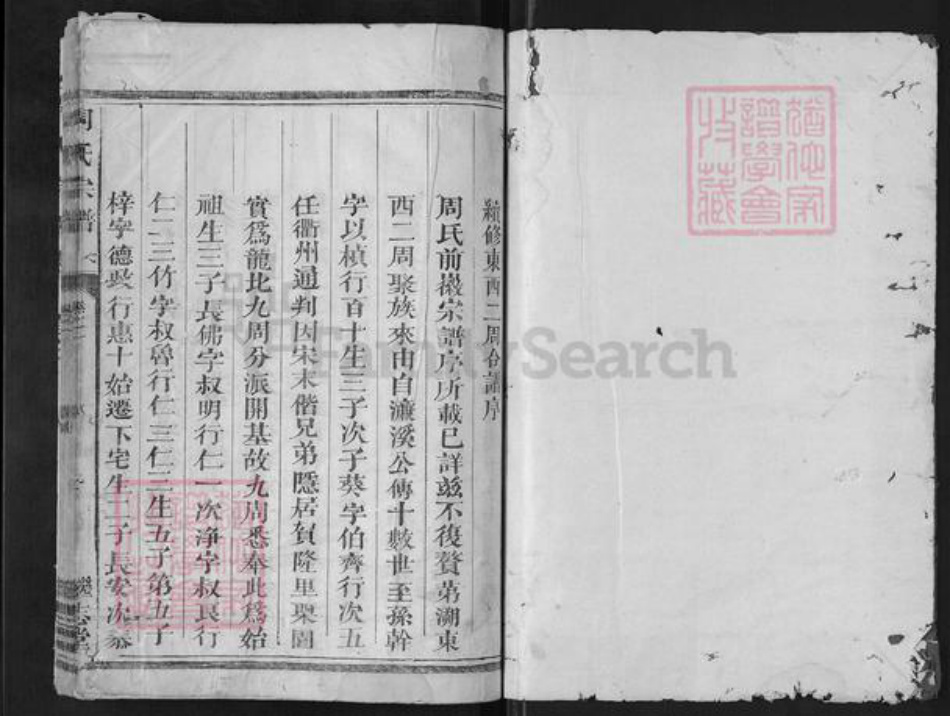 猶他家
譜學會
收藏
續修東西二周合譜序
周氏前㩁宗譜序所載已詳茲不復贅第溯東
西二周聚族來由自濂溪公傳十數世至孫幹
字以楨行百十生三子次子葵字伯齊行次五
任衢州通判因宋末偕兄弟隱居賀隆里梨園
實為龍北九周分派開基故九周悉奉此為始
祖生三子長佛字叔明行仁一次淨字叔良行
仁二三竹字叔魯行仁三仁二生五子第五子
梓字德 行惠十始遷下宅生二子長安次泰
周氏宗譜
FamilySearch